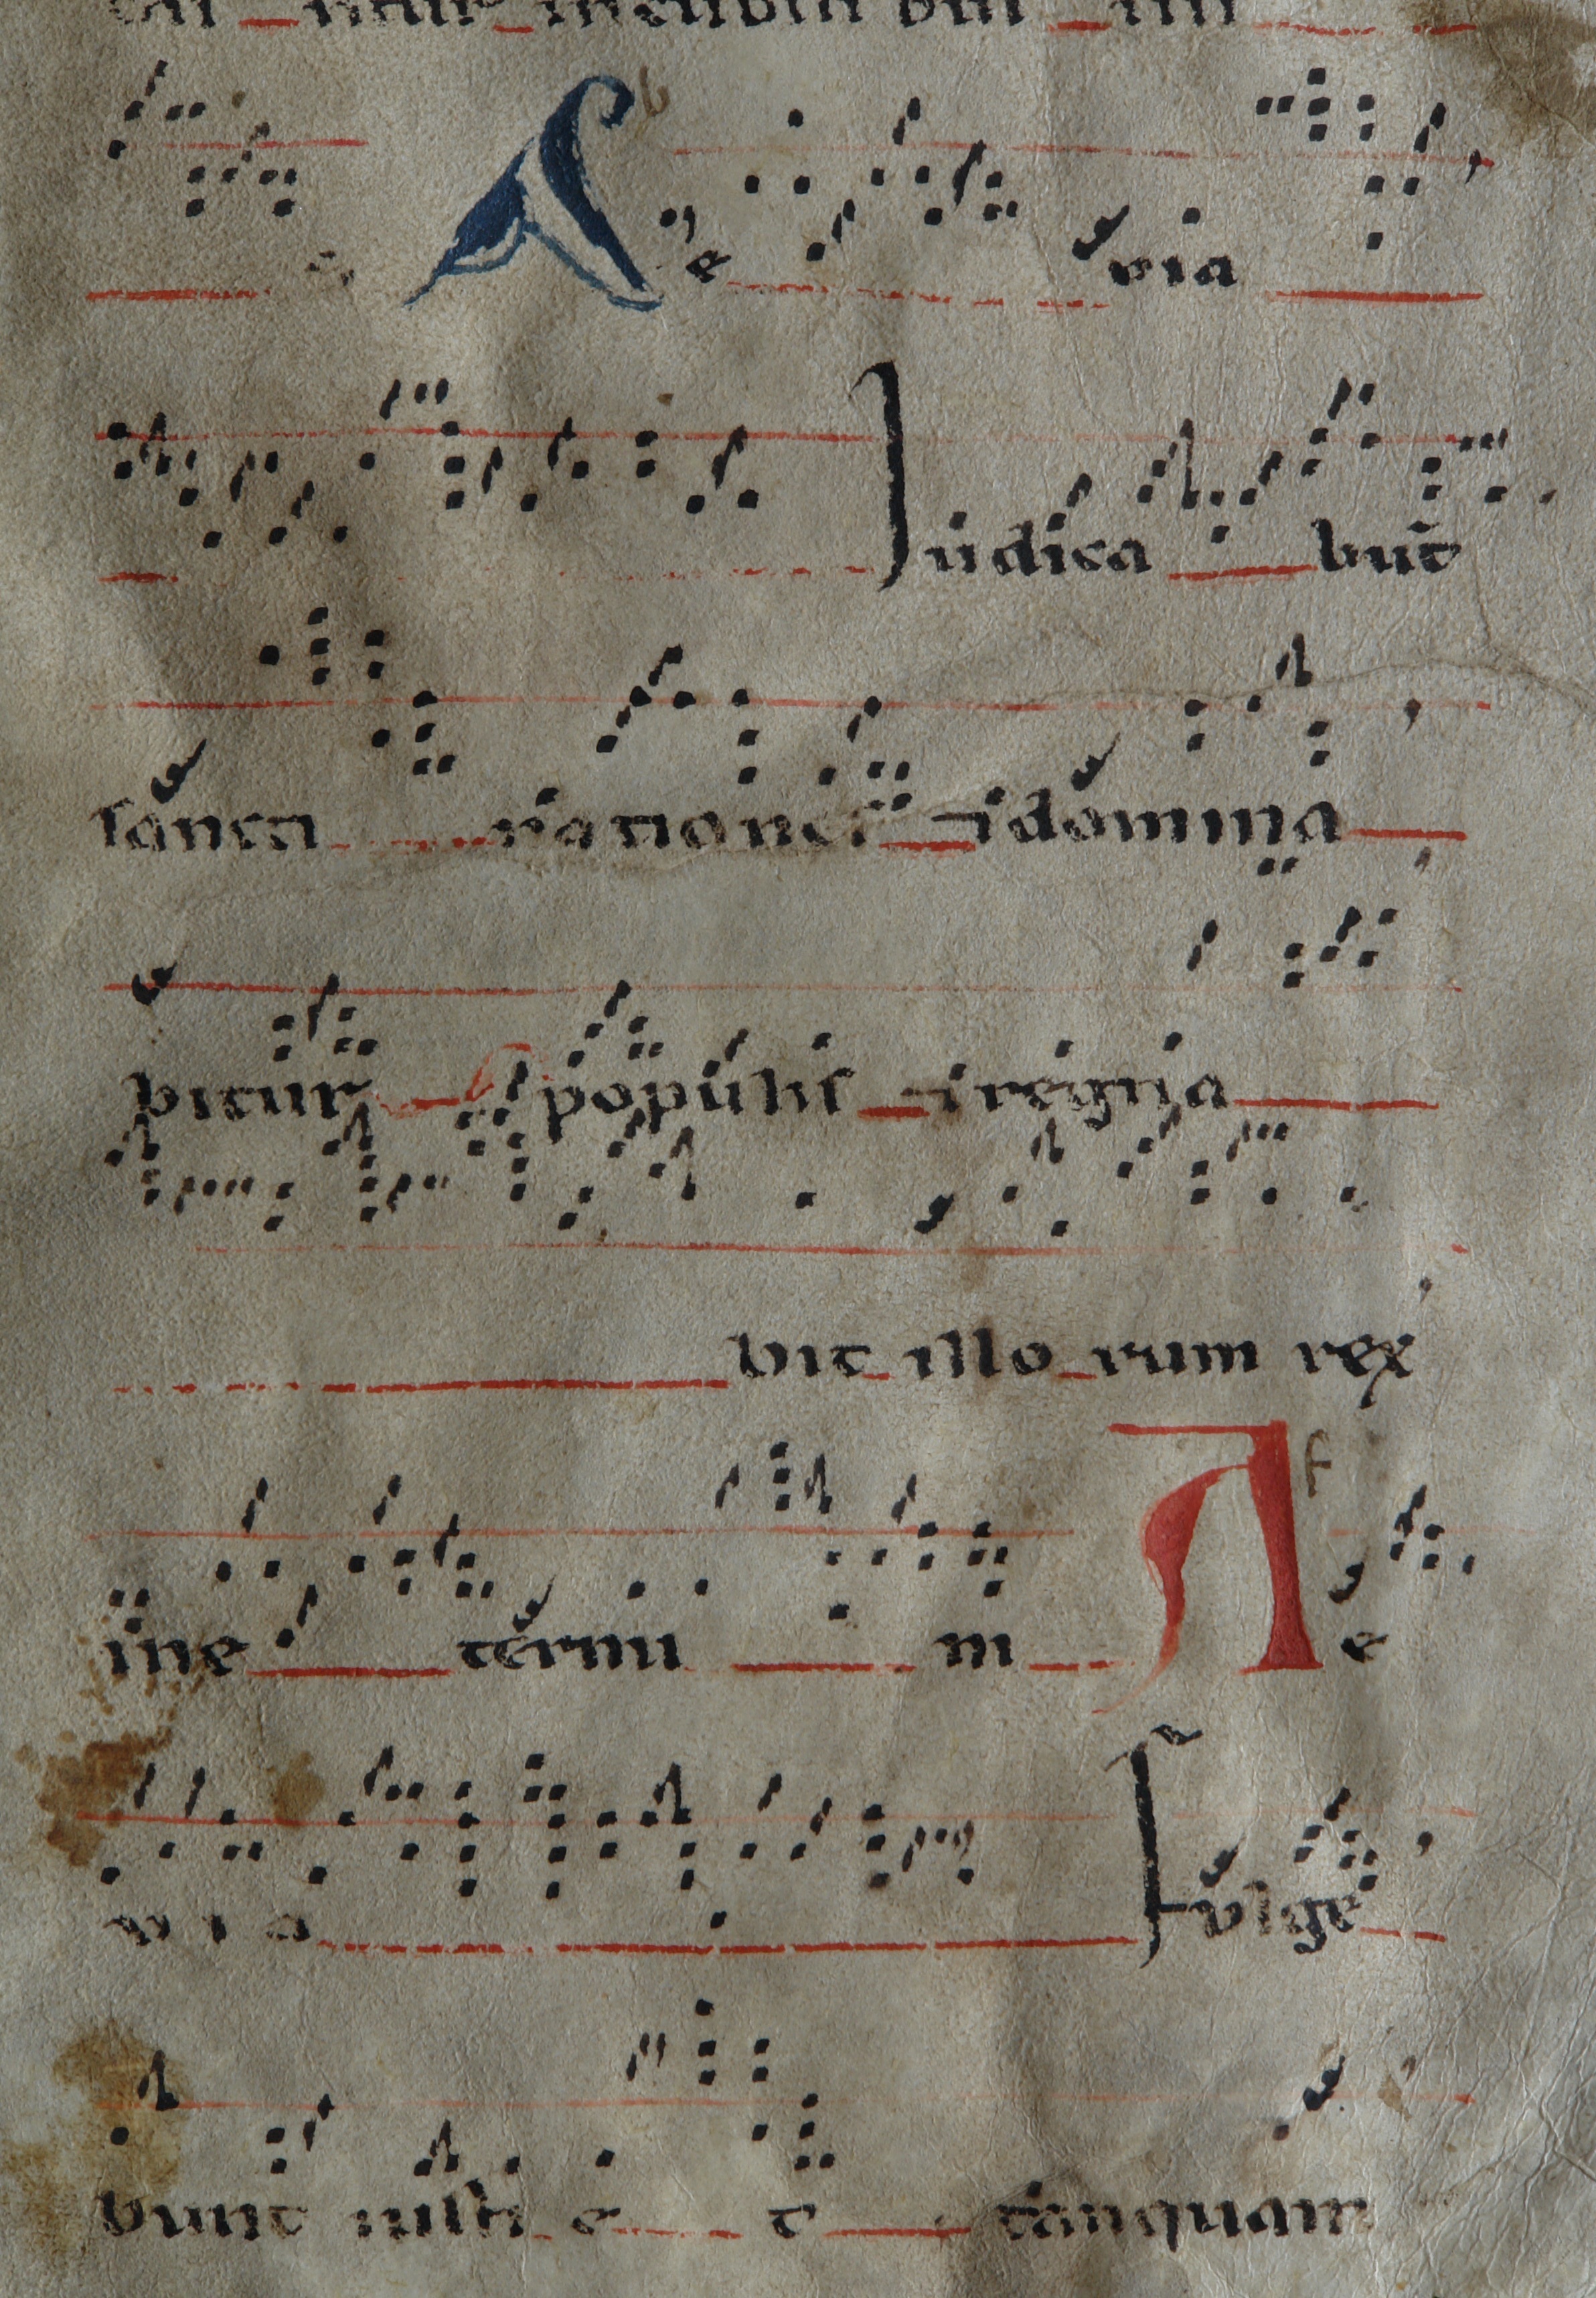 A e via
Judica bunt̄
sancti nationes & domina
bitur populis & regna
bit illo rum rex
ine termi ni A e
v i a Fulge
bunt iusti e t tanquam